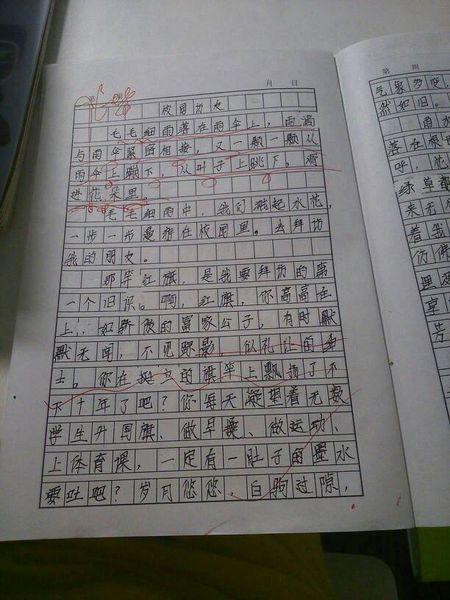 月 日
校园访友
毛毛细雨落在雨伞上,雨滴
与雨伞紧密相接,又一颗一颗从
雨伞上跳下,从叶子上跳下,滑
进花朵里。
毛毛细雨中,我们溅起水花,
一步一步悬浮在校园里。去拜访
我的朋友。
那竿红旗,是我要拜访的第
一个旧识。啊,红旗,你高高在
上,如骄傲的富家公子,有时默
默无闻,不见踪影,似礼让的绅
士。你在挺立的旗竿上飘扬了不
下十年了吧?你每天凝望着无数
学生升国旗、做早操、做运动、
上体育课,一定有一肚子的墨水
要吐吧?岁月悠悠,白驹过隙,
第 周
与聚多吧
然如旧。
雨
落在
呼,花
绿草都
来无
着盖
仿佛
里
享
芳